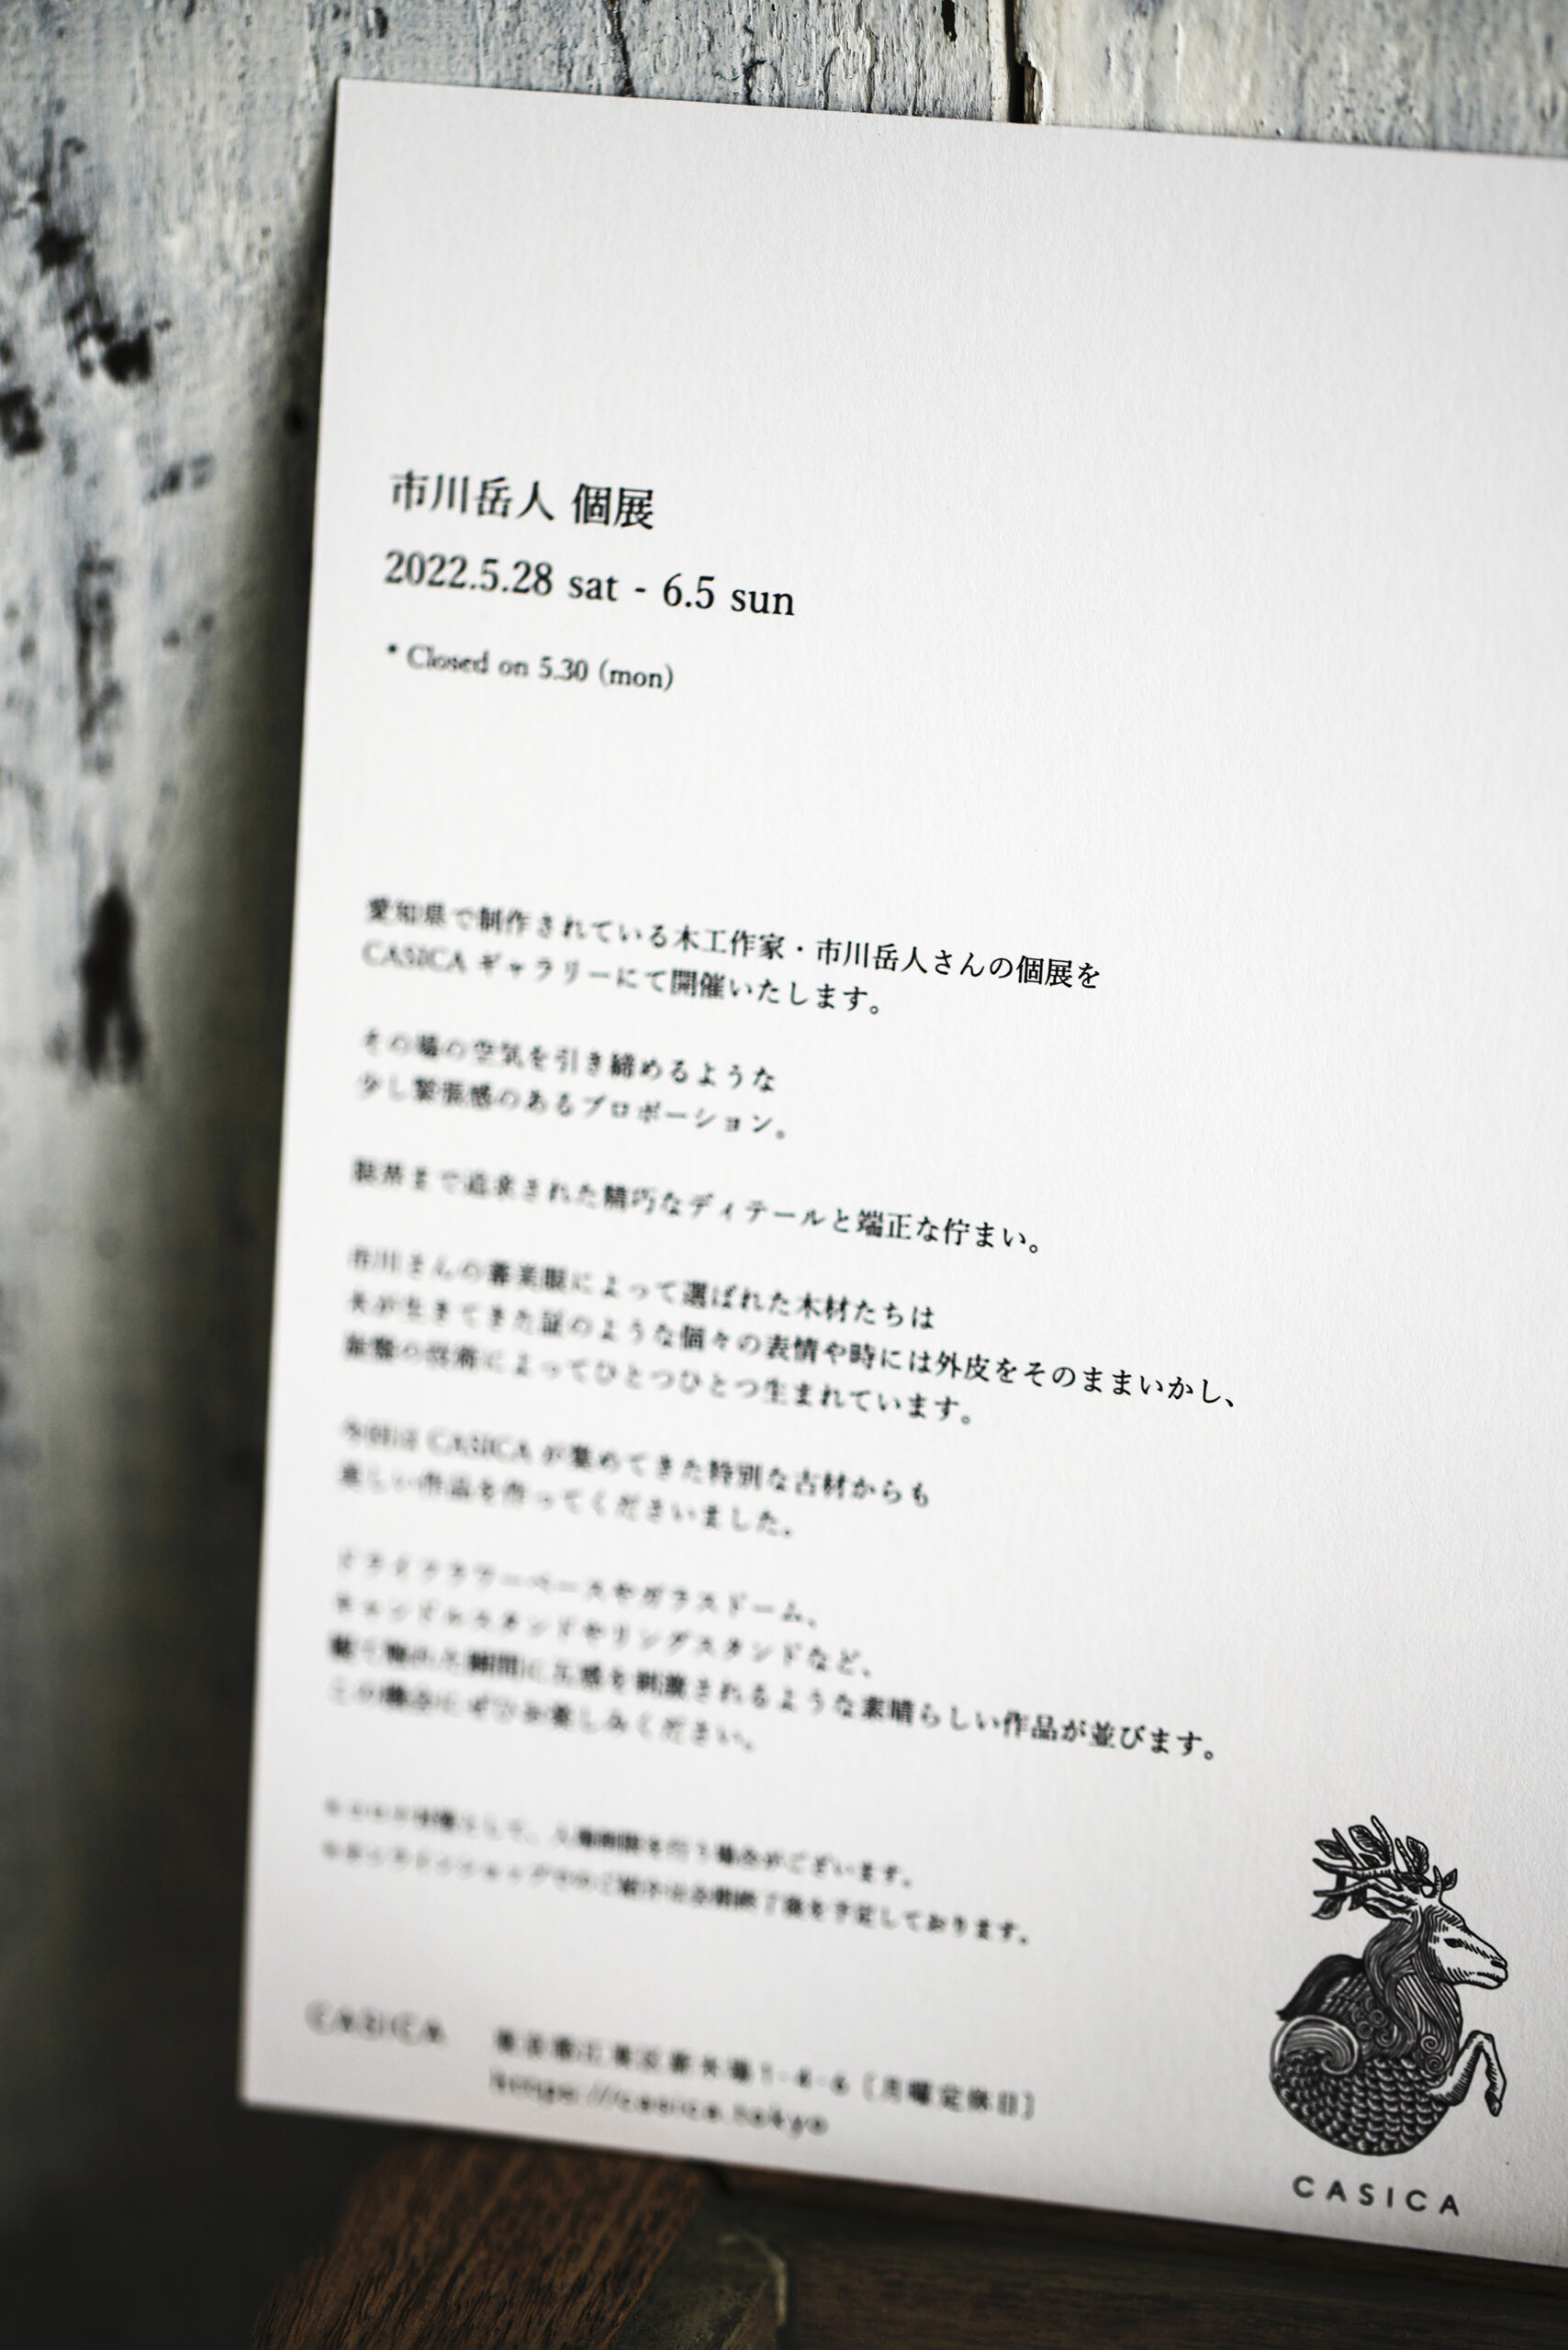 市川岳人 個展
2022.5.28 sat - 6.5 sun
* Closed on 5.30 (mon)
愛知県で制作されている木工作家・市川岳人さんの個展を
CASICA ギャラリーにて開催いたします。
その場の空気を引き締めるような
少し緊張感のあるプロポーション。
まで追求された精巧なディテールと端正な佇まい。
市川さんの審美眼によって選ばれた木材たちは
木が生きてきた証のような個々の表情や時には外皮をそのままいかし、
によってひとつひとつ生まれています。
今回は CASICA が集めてきた特別な古材からも
美しい作品を作ってくださいました。
ドライフラワーベースやガラスドーム、
キャンドルスタンドやリングスタンドなど、
瞬間に五感を刺激されるような素晴らしい作品が並びます。
この機会にぜひお楽しみください。
として、入場制限を行う場合がございます。
オンラインショップでのご紹介は会期終了後を予定しております。
CASICA 東京都江東区新木場1-4-6［月曜定休日］
https://casica.tokyo
CASICA